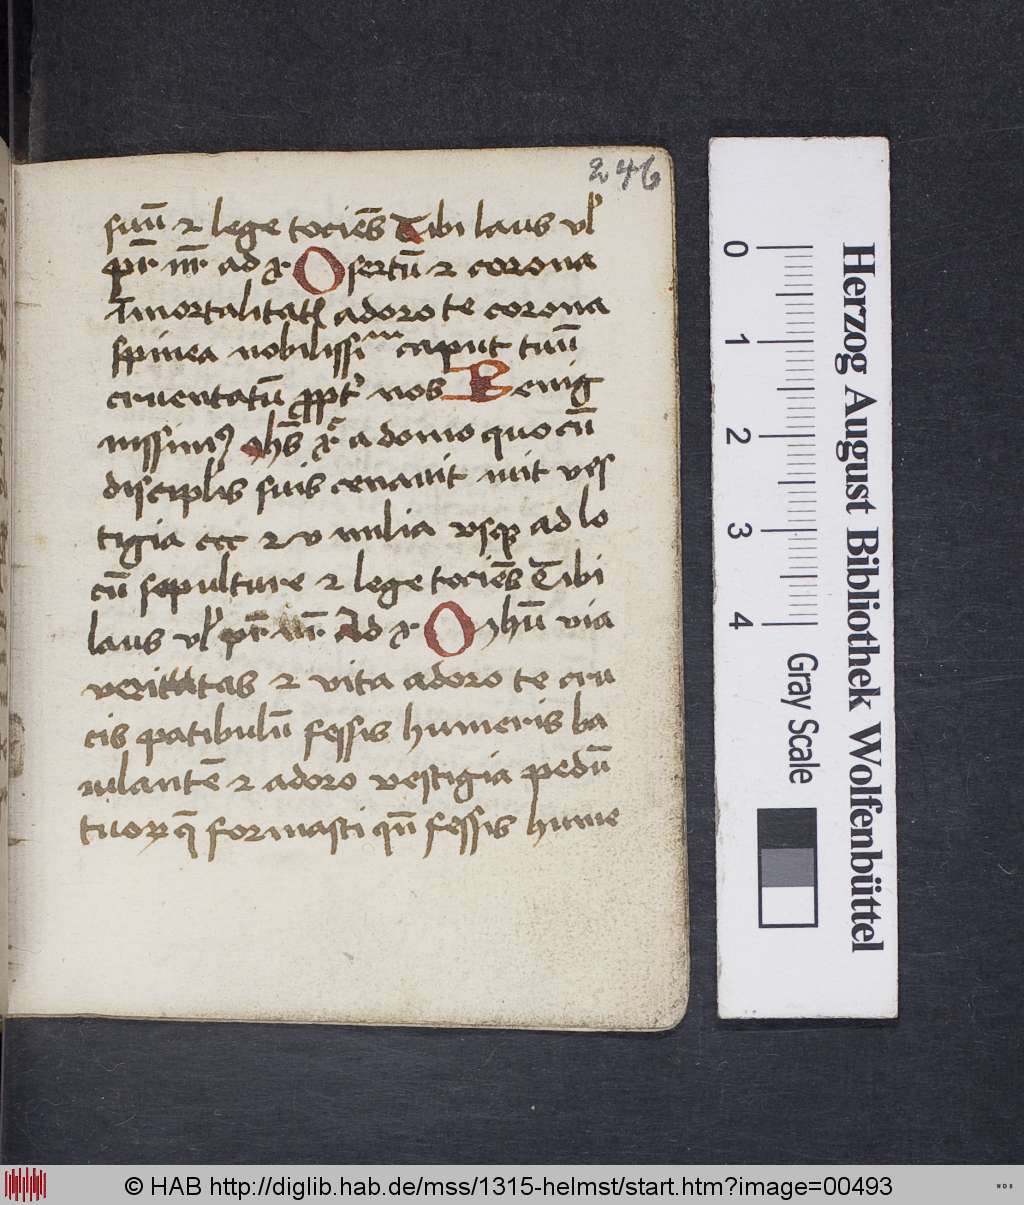 246
suū ⁊ lege tociēs Tibi laus vl'
pr̄ nr̄ ad x̄ O sertū ⁊ corona
Inmortalitatꝭ adoro te corona
spinea nobilissimum caput tuū
cruentatū ꝓpt' nos Benig
nissimꝰ ihs̄ xꝰ a domo quo cū
discipl'is suis cenauit iuit ves
tigia ccc ⁊ v milia vsqꝫ ad lo
cū sepulture ⁊ lege tociēs Tibi
laus vl' pr̄ nr̄ Ad x̄ O ihū via
veritatas ⁊ vita adoro te cru
cis patibulū fessis humeris ba
iulantē ⁊ adoro vestigia pedū
tuoꝝ q̄ formasti qn̄ fessis hume
0
1
2
3
4
Gray Scale
Herzog August Bibliothek Wolfenbüttel
© HAB http://diglib.hab.de/mss/1315-helmst/start.htm?image=00493